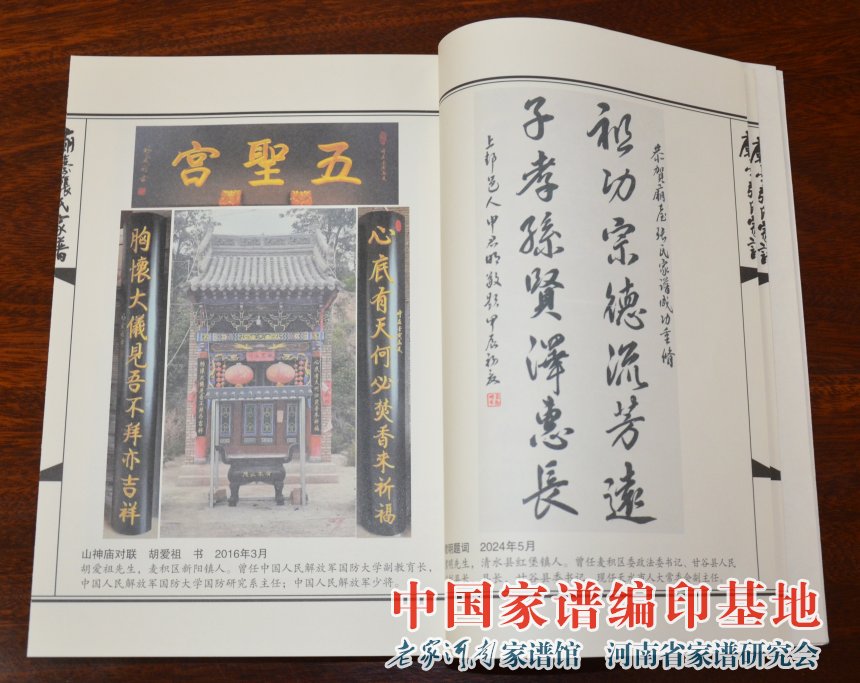 五聖宮
心底有天何必焚香來祈福
胸懷大儀見吾不拜亦吉祥
山神庙对联 胡爱祖 书 2016年3月
胡爱祖先生，麦积区新阳镇人。曾任中国人民解放军国防大学副教育长，
中国人民解放军国防大学国防研究系主任；中国人民解放军少将。
恭贺庙底張氏家譜成功重修
祖功宗德流芳遠
子孝孫賢澤惠長
上邽邑人申君明敬題甲辰初夏
明题词 2024年5月
先生，清水县红堡镇人。曾任麦积区委政法委书记、甘谷县人民
县长、甘谷县委书记，现任天水市人大常委会副主任
中国家谱编印基地
老家河南家谱馆 河南省家谱研究会